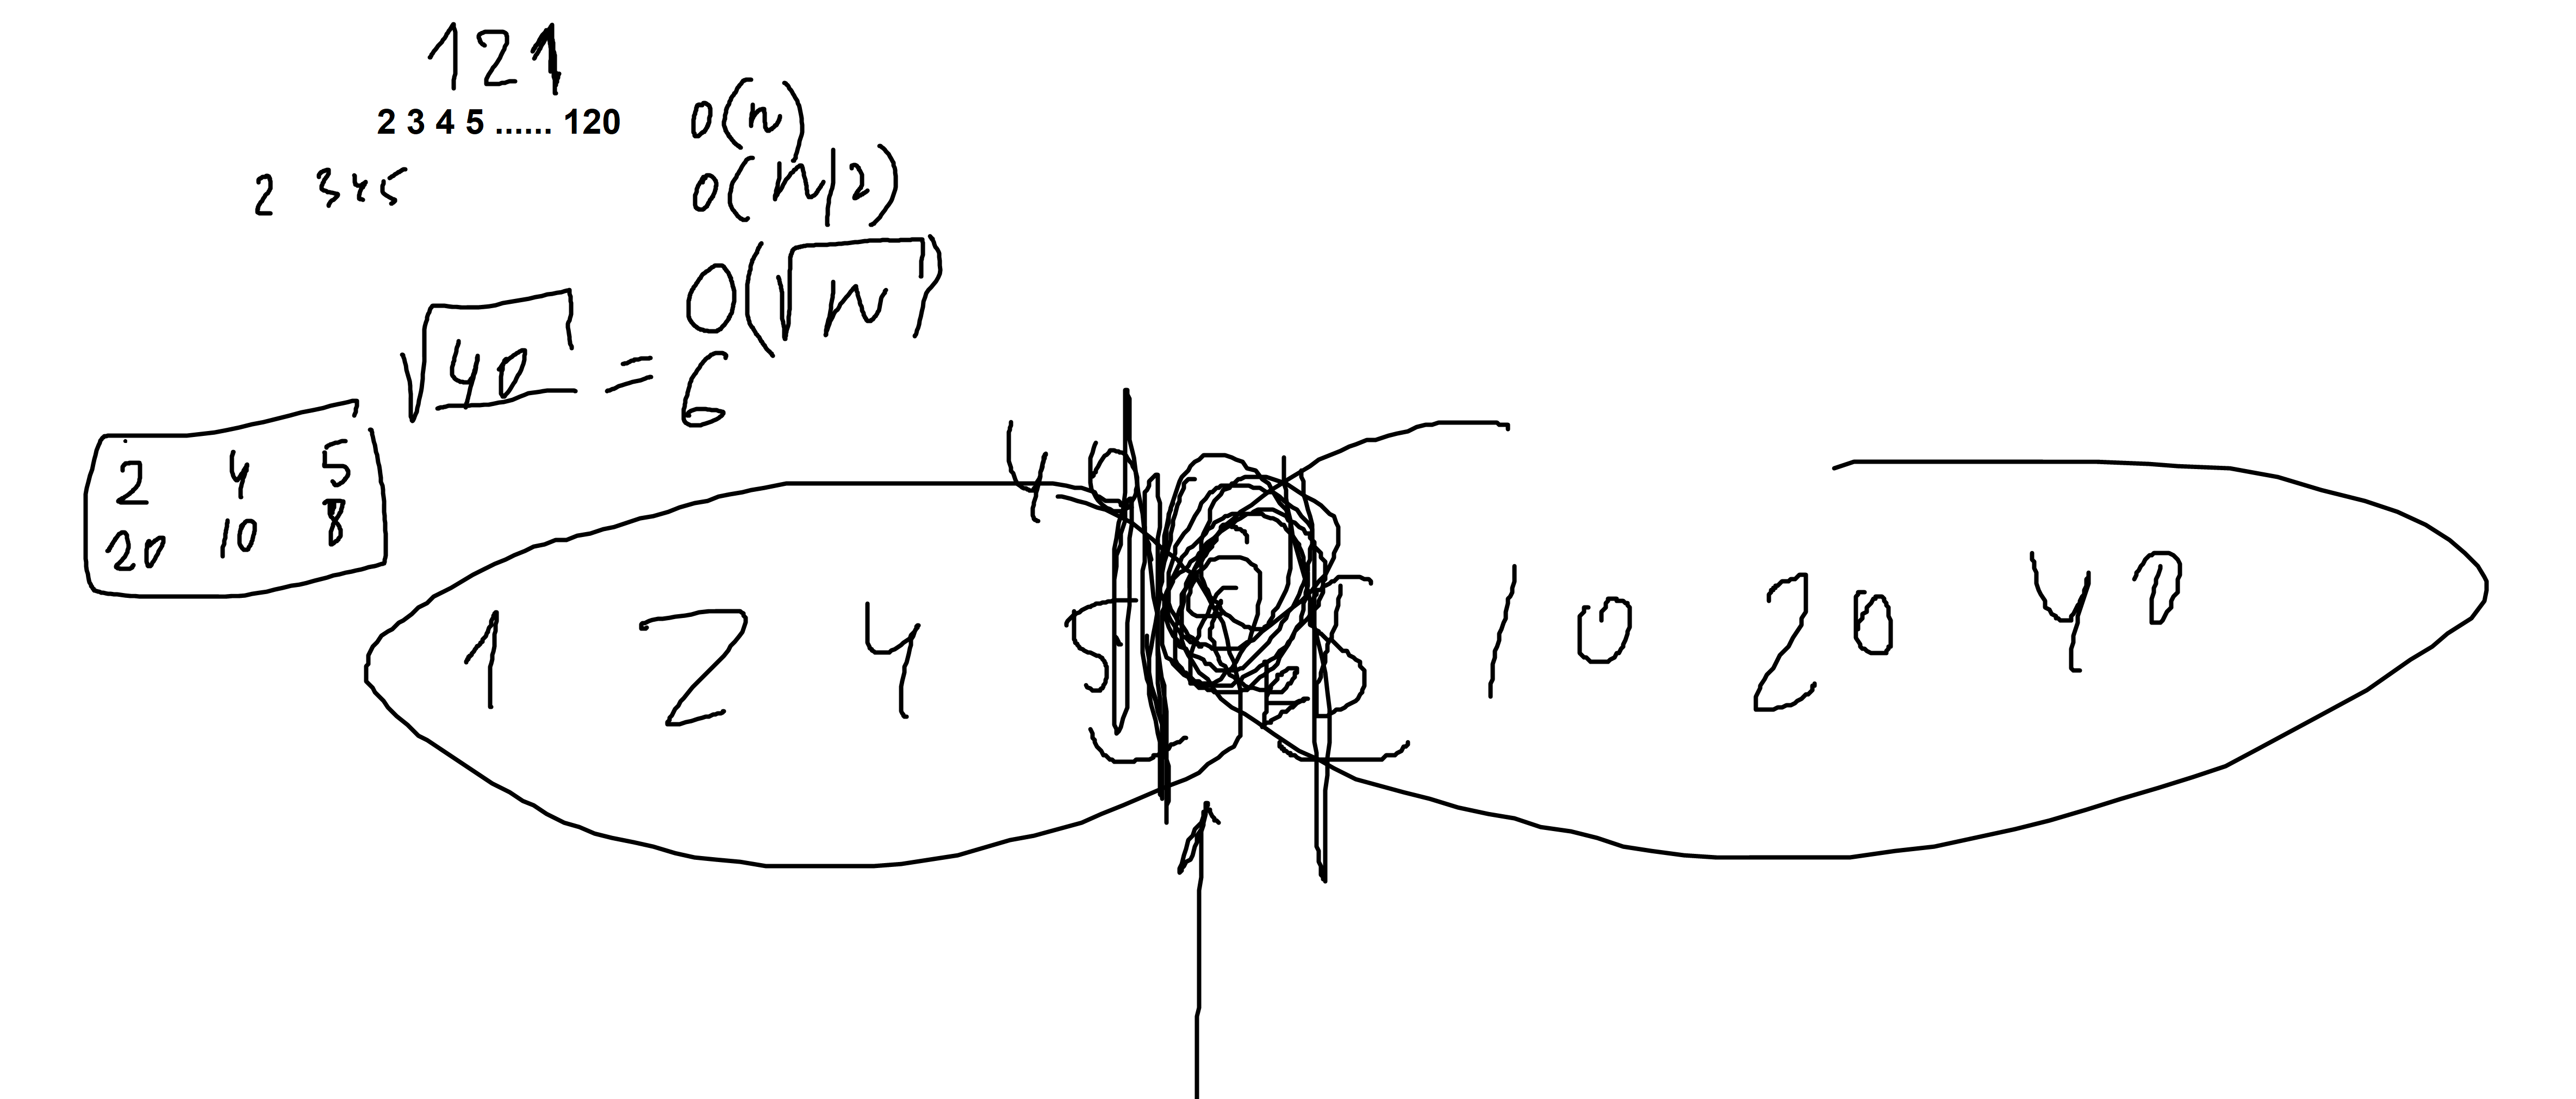 121
2 3 4 5 ...... 120
O(n)
2 3 4 5
O(n/2)
O(√n)
√40 = 6
2 4 5
20 10 8
40
1 2 4 5 10 20 40